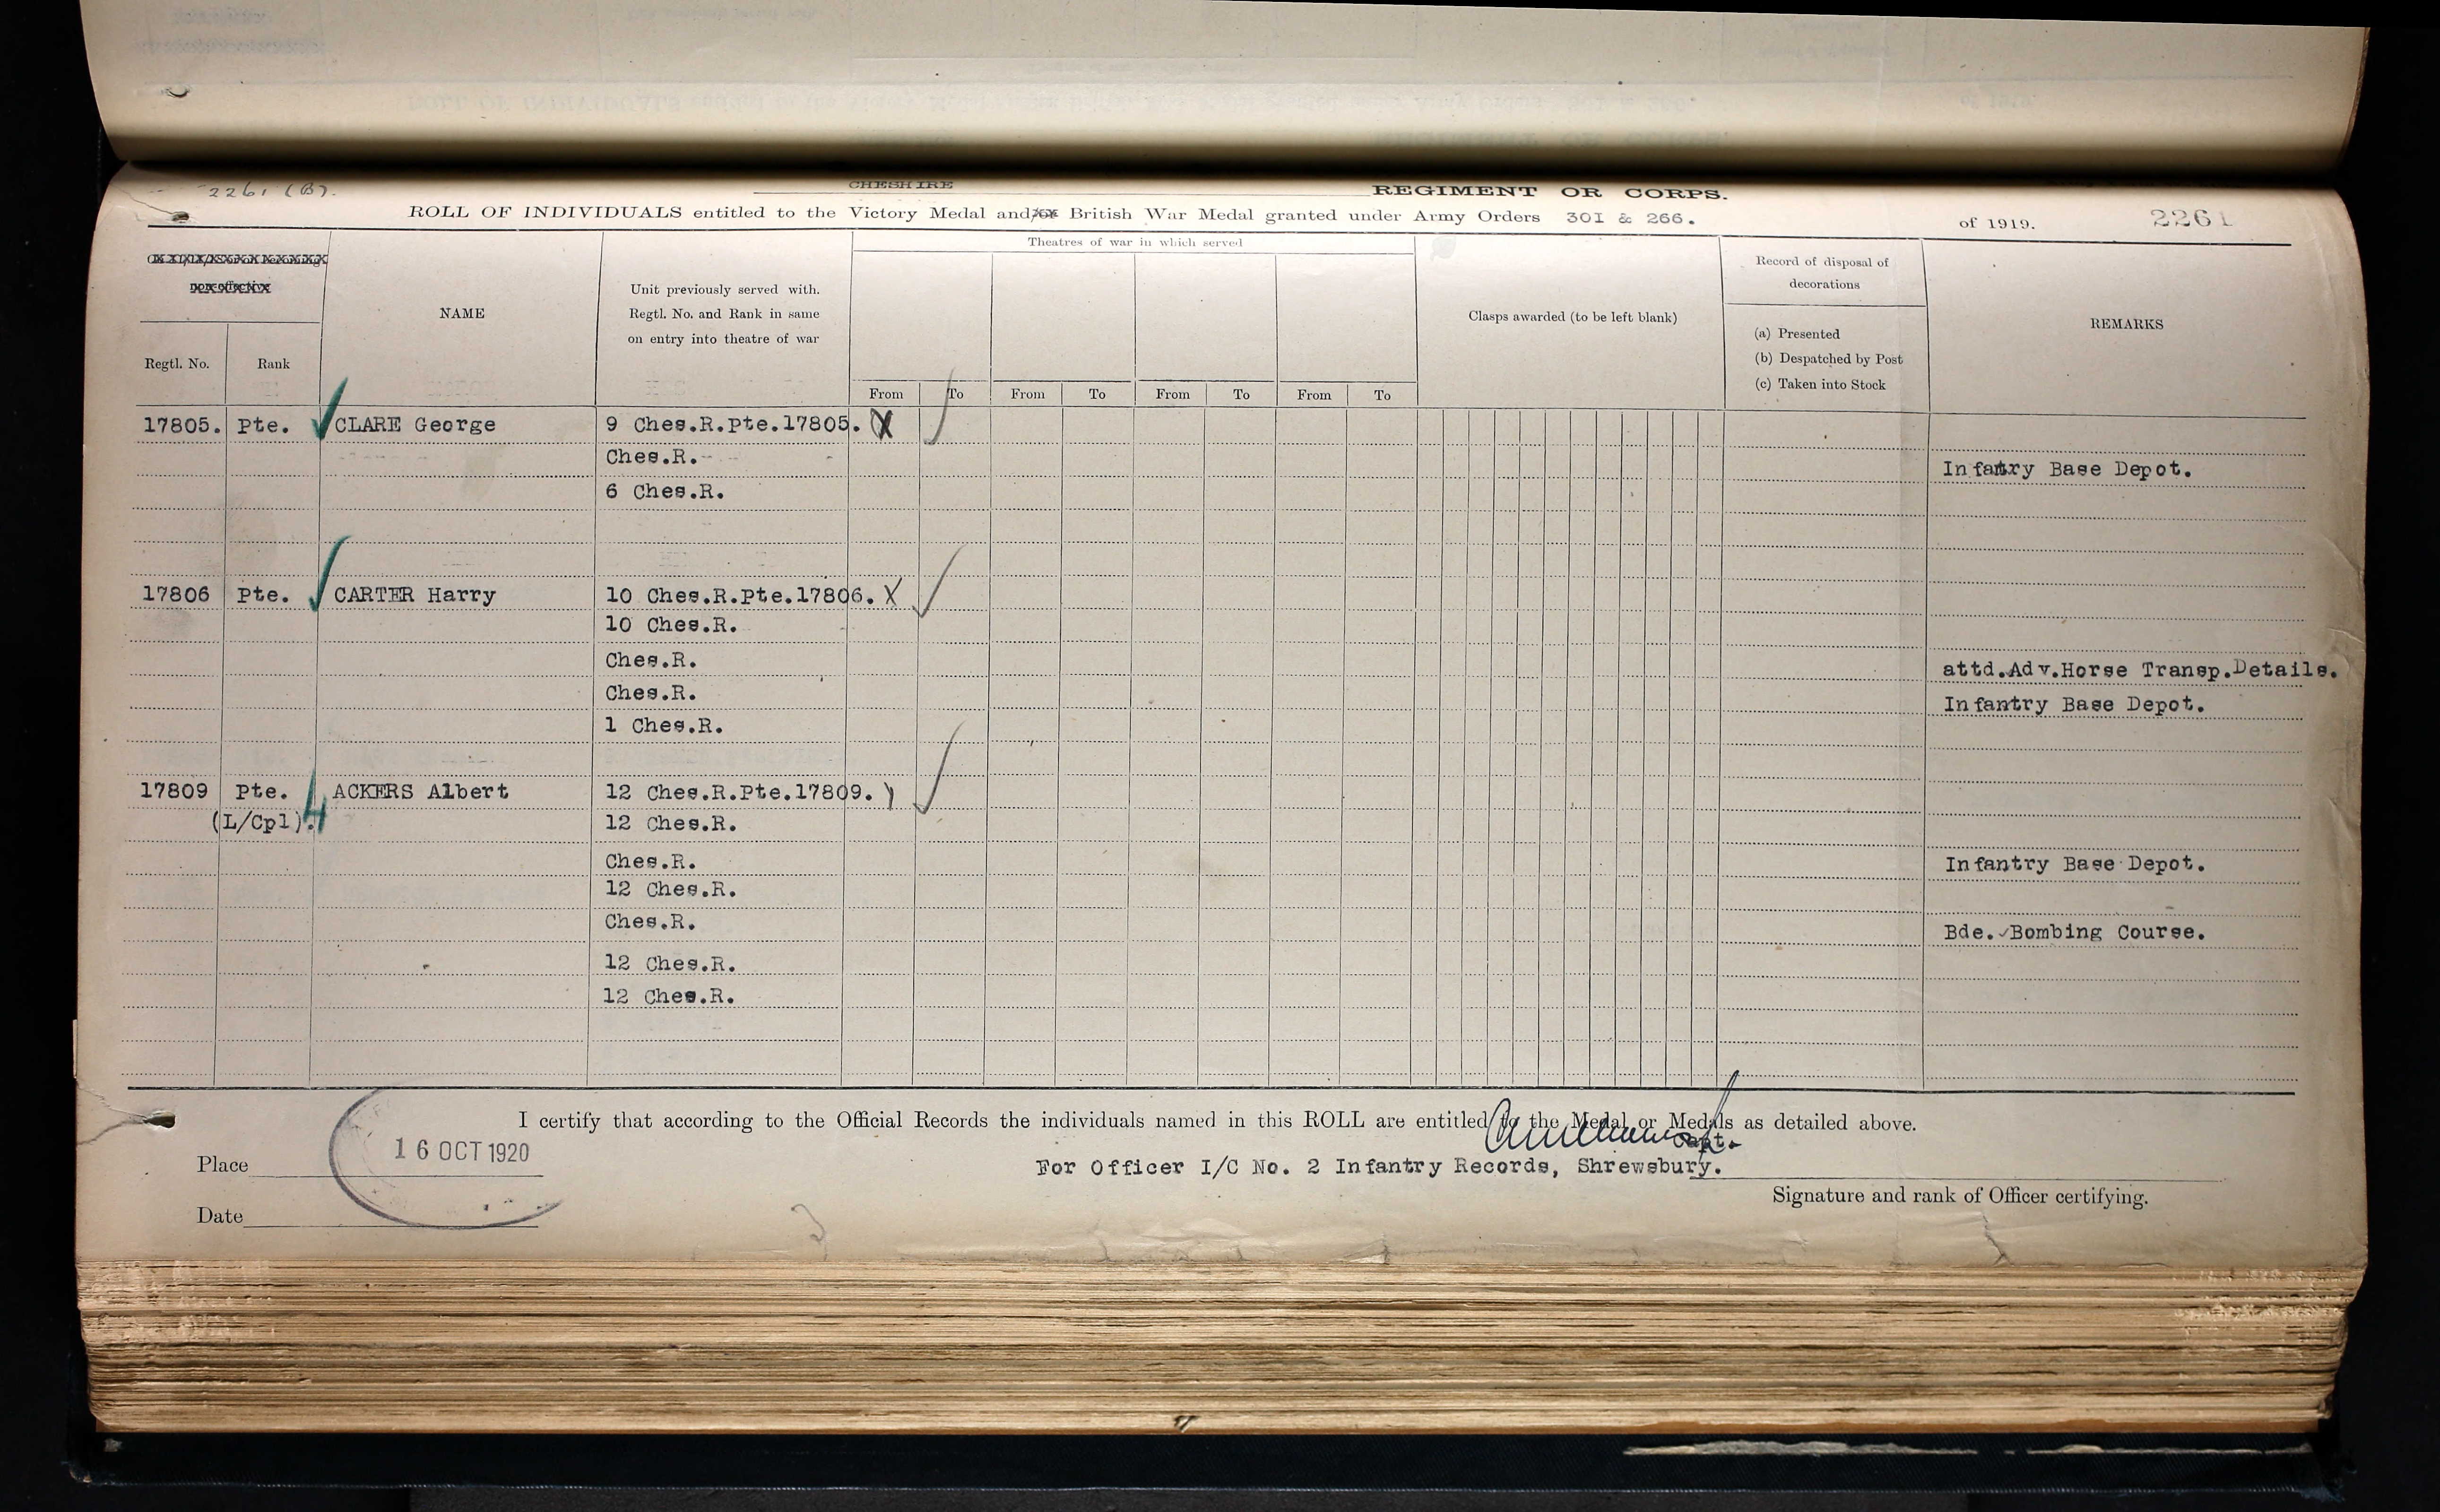 2261 (B).
CHESHIRE REGIMENT OR CORPS.
ROLL OF INDIVIDUALS entitled to the Victory Medal and/or British War Medal granted under Army Orders 301 & 266. of 1919. 2261
Theatres of war in which served
Record of disposal of
decorations
non-effective
Unit previously served with.
Regtl. No. and Rank in same
on entry into theatre of war
NAME
Clasps awarded (to be left blank)
REMARKS
(a) Presented
(b) Despatched by Post
(c) Taken into Stock
Regtl. No. Rank
From To From To From To From To
17805. Pte. CLARE George 9 Ches.R.Pte.17805. X
Ches.R. Infantry Base Depot.
6 Ches.R.
17806 Pte. CARTER Harry 10 Ches.R.Pte.17806. X
10 Ches.R.
Ches.R. attd.Adv.Horse Transp.Details.
Ches.R. Infantry Base Depot.
1 Ches.R.
17809 Pte. ACKERS Albert 12 Ches.R.Pte.17809.
(L/Cpl). 12 Ches.R.
Ches.R. Infantry Base Depot.
12 Ches.R.
Ches.R. Bde. Bombing Course.
12 Ches.R.
12 Ches.R.
I certify that according to the Official Records the individuals named in this ROLL are entitled to the Medal or Medals as detailed above.
Capt.
Place 16 OCT 1920
For Officer I/C No. 2 Infantry Records, Shrewsbury.
Signature and rank of Officer certifying.
Date